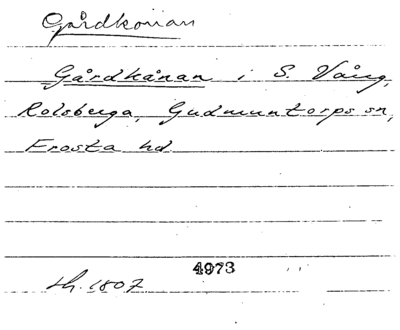 Gårdkonan
Gårdkånan i S. Vång,
Rolsberga, Gudmuntorps sn,
Frosta hd
4973
Lh. 1807